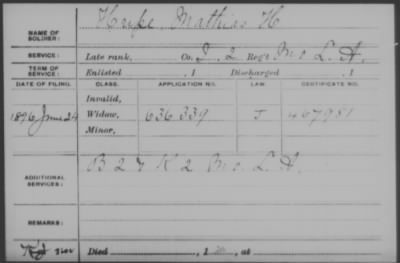 NAME OF SOLDIER: Hupe, Mathias H
SERVICE: Late rank, Co. I. 2 Reg't Mo L. A.
TERM OF SERVICE: Enlisted , 1 Discharged , 1
DATE OF FILING. CLASS. APPLICATION NO. LAW. CERTIFICATE NO.
Invalid,
1896 June 24 Widow, 636339 J 467951
Minor,
ADDITIONAL SERVICES: B 2 & K 2 Mo. L. A.
REMARKS:
Died , 1 , at